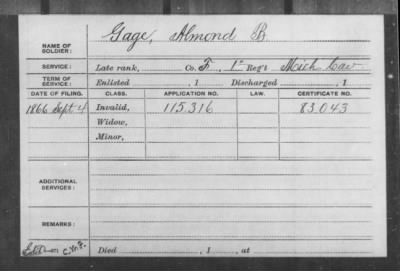 NAME OF SOLDIER: Gage, Almond B.
SERVICE: Late rank, Co. F, 1st Reg't Mich Cav
TERM OF SERVICE: Enlisted , 1 Discharged , 1
DATE OF FILING. CLASS. APPLICATION NO. LAW. CERTIFICATE NO.
1866 Sept 4 Invalid, 115.316 83.043
Widow,
Minor,
ADDITIONAL SERVICES:
REMARKS:
C.Yn?.
Died , 1 , at